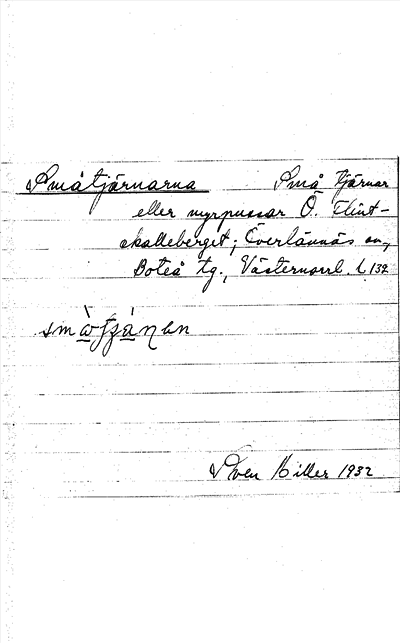 Småtjärnarna Små tjärnar
eller myrpussar Ö. Flint-
skalleberget; Överlännäs sn,
Boteå tg., Västernorrl. l.
Sven Hiller 1932